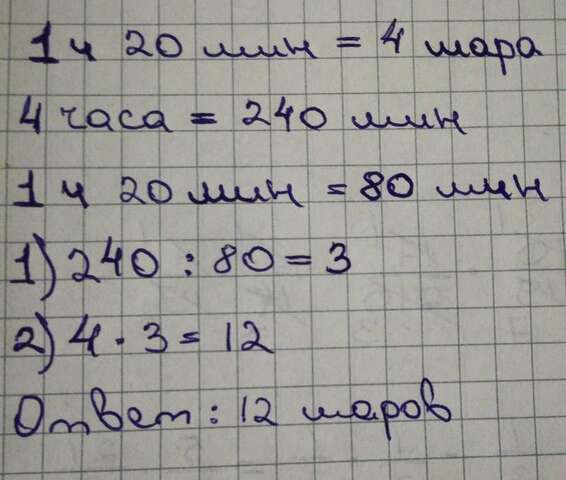 1 ч 20 мин = 4 шара
4 часа = 240 мин
1 ч 20 мин = 80 мин
1) 240 : 80 = 3
2) 4 · 3 = 12
Ответ: 12 шаров